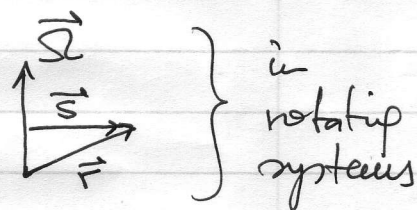 Ω⃗
s⃗
r⃗
in
rotating
systems